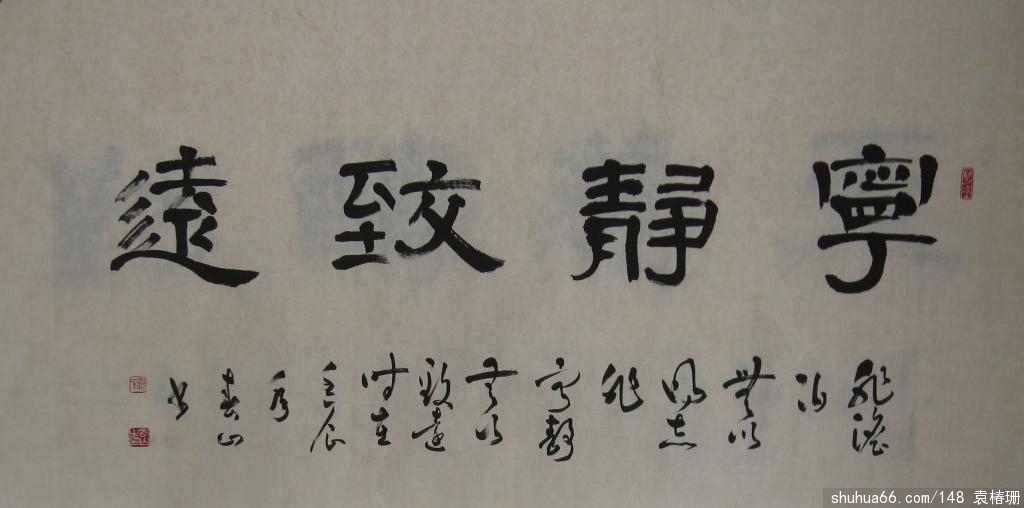 寧靜致遠
非澹
泊
無以
明志
非
寧靜
无以
致遠
时在
壬辰
春山
书
shuhua66.com/148 袁椿珊